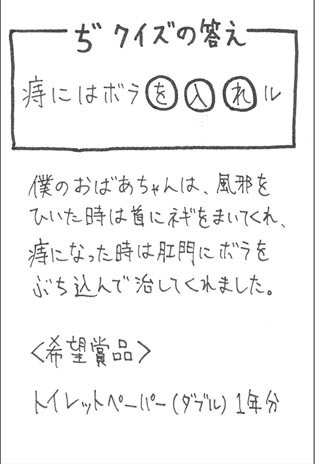 ぢクイズの答え
痔にはボラを入れル
僕のおばあちゃんは、風邪を
ひいた時は首にネギをまいてくれ、
痔になった時は肛門にボラを
ぶち込んで治してくれました。
<希望賞品>
トイレットペーパー(ダブル)1年分